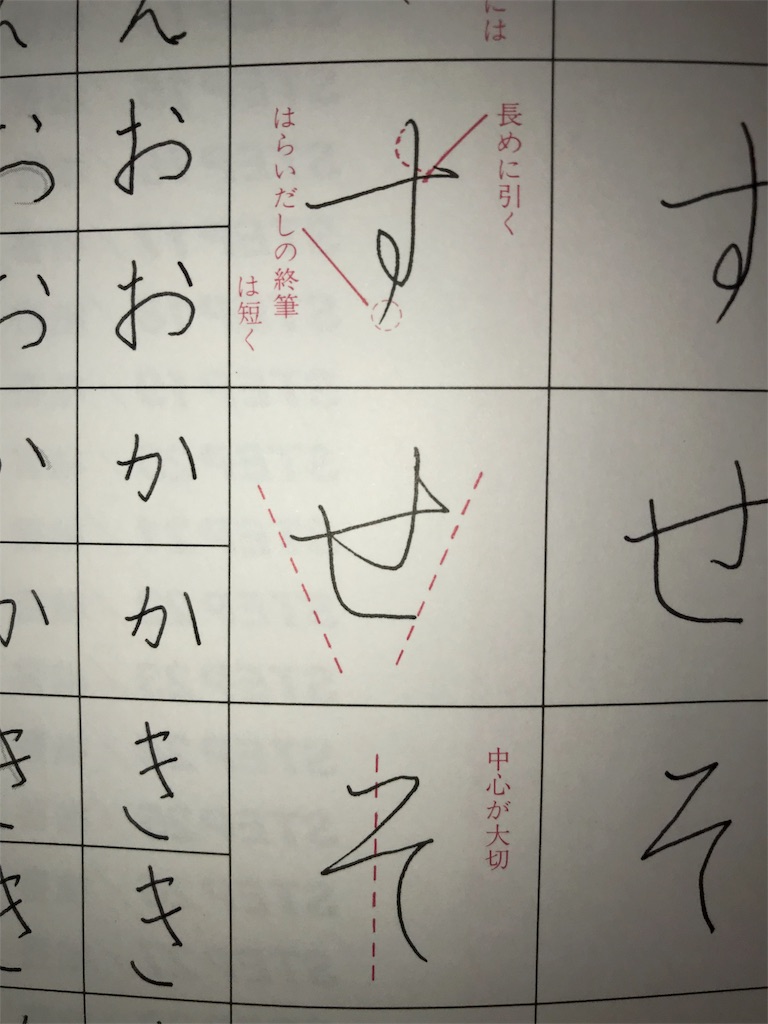 には
す
す
長めに引く
はらいだしの終筆
は短く
せ
せ
そ
そ
中心が大切
ん
お
お
か
か
き
き
ん
お
お
か
か
き
き